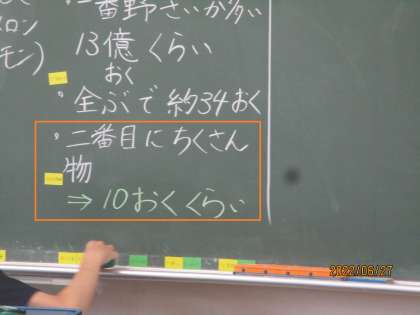 一番野さいが多い
メロン
モン)
13億くらい
おく
・全ぶで約34おく
・二番目にちくさん
物
⇒10おくくらい
2022/06/27